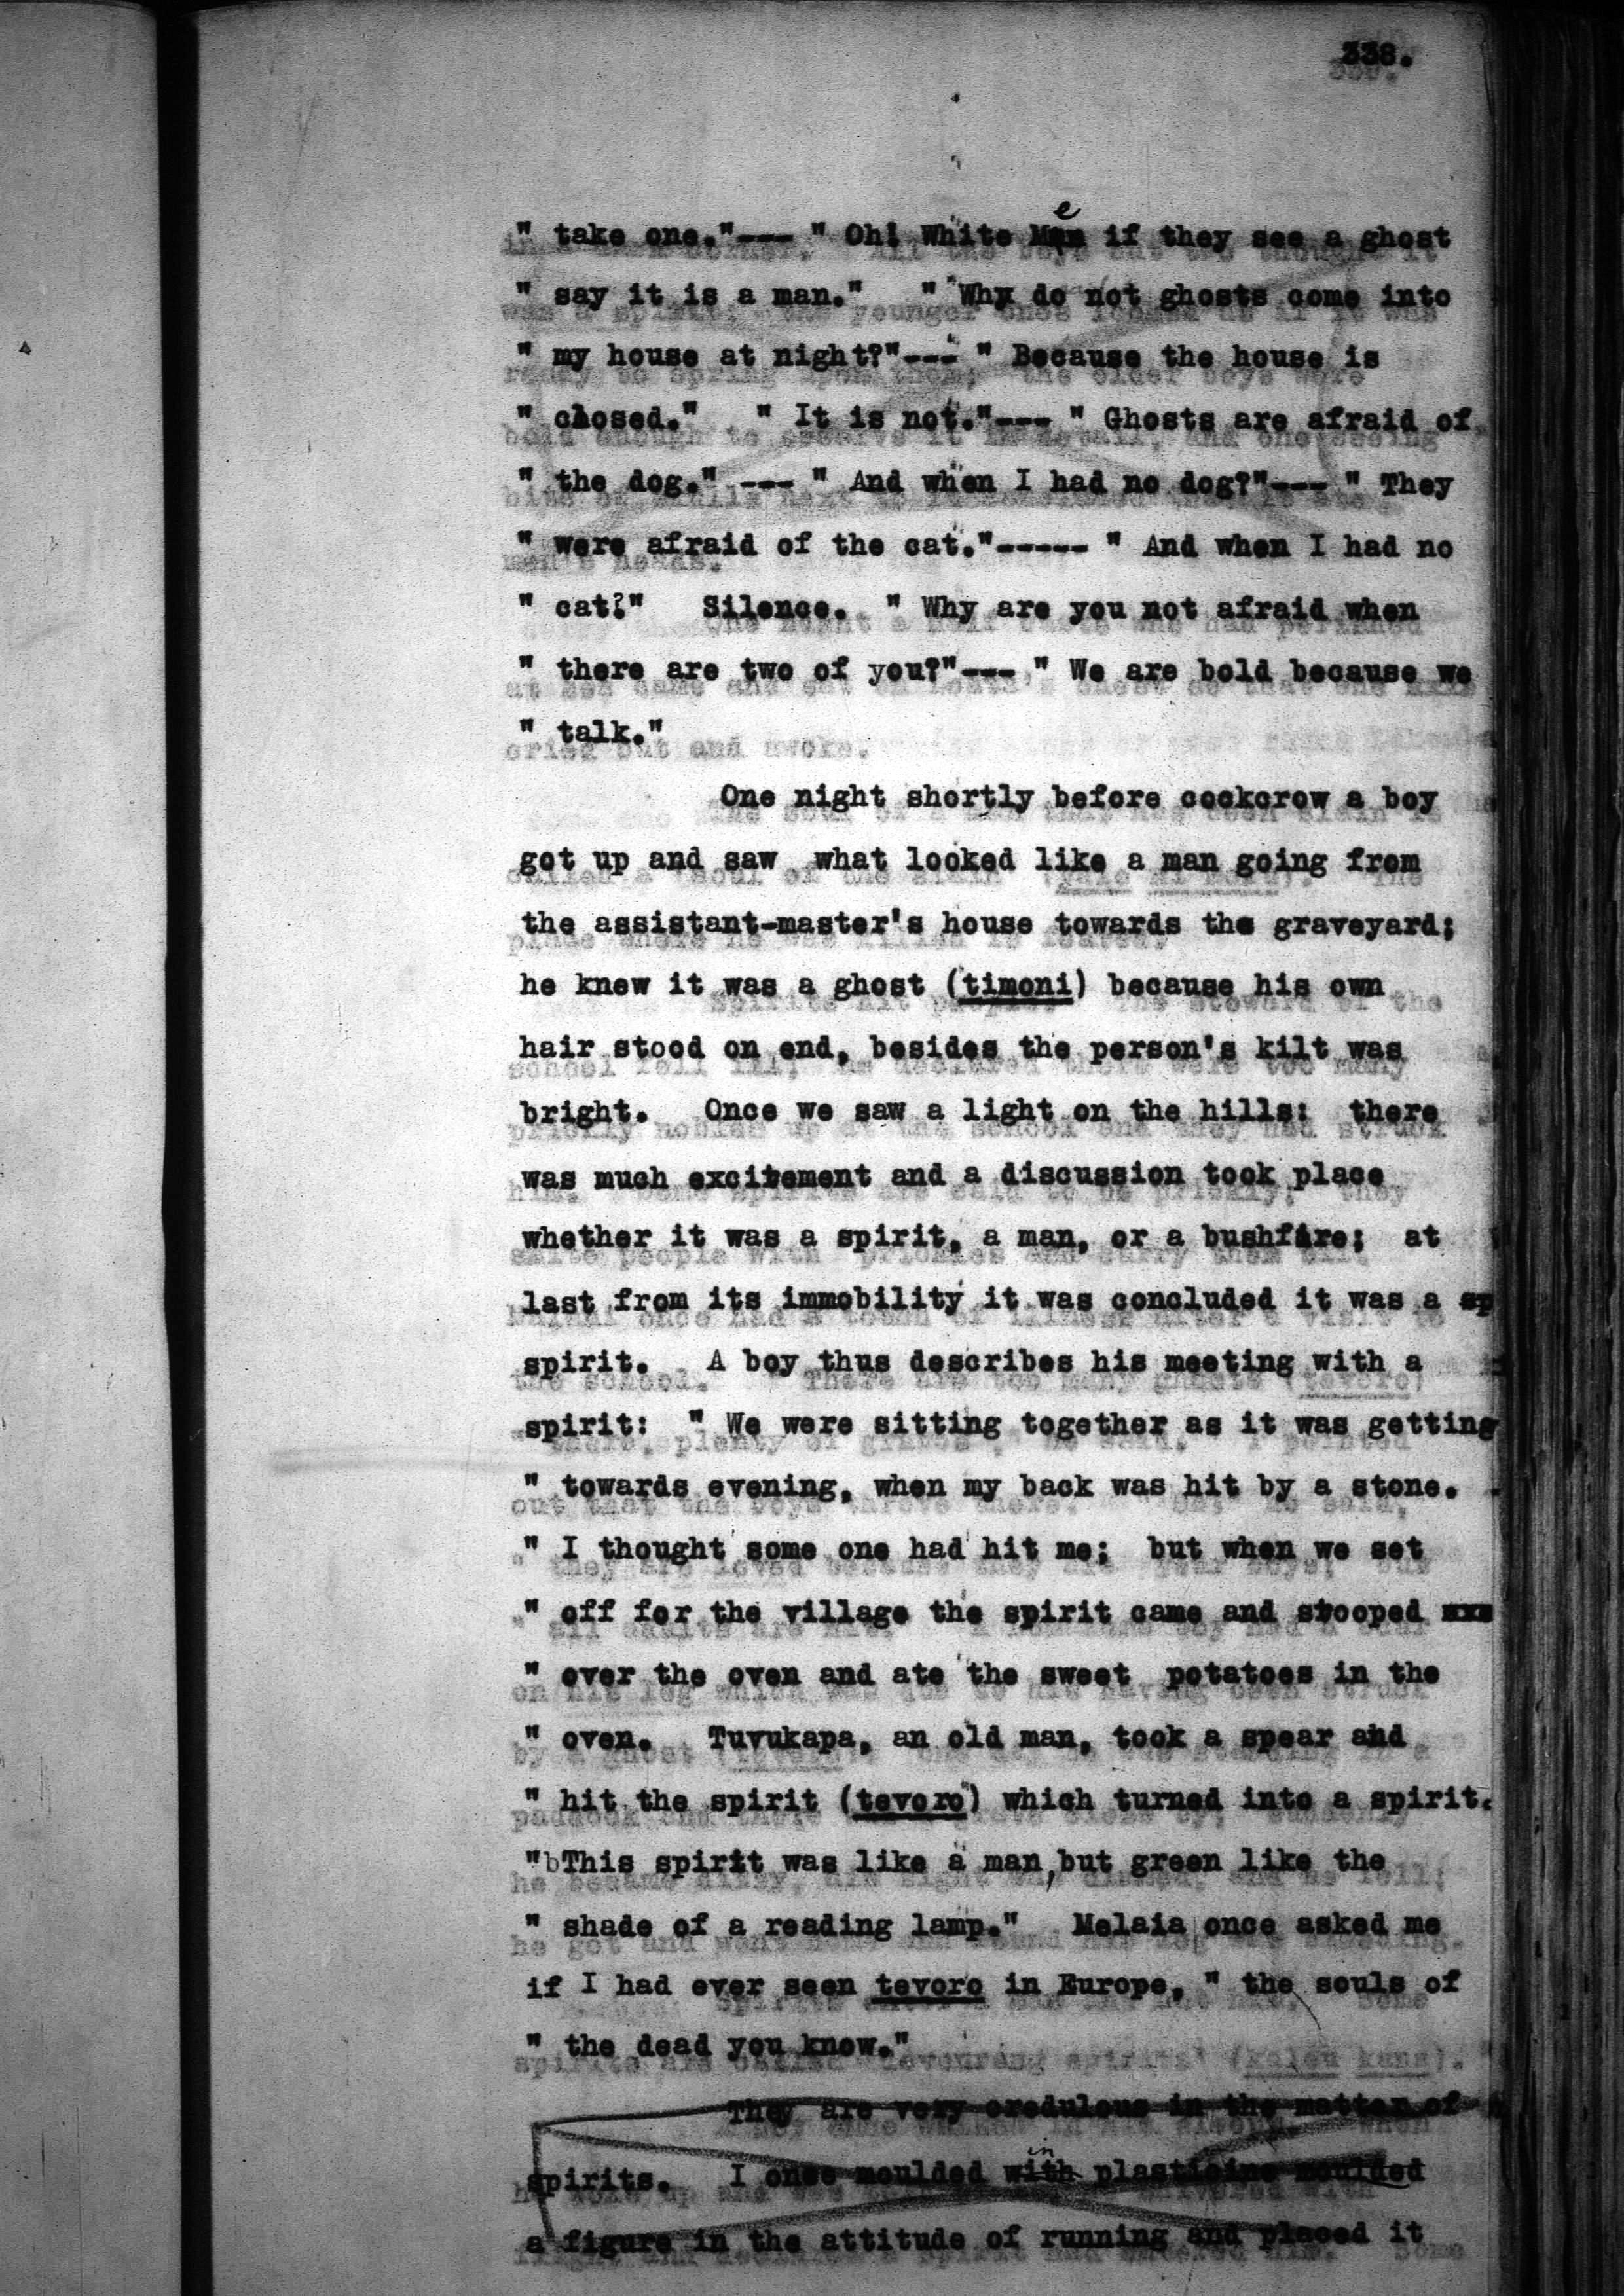 338.
" take one."--- " Oh! White Men if they see a ghost
" say it is a man."   " Why do not ghosts come into
" my house at night?"--- " Because the house is
" closed."   " It is not."--- " Ghosts are afraid of
" the dog." --- " And when I had no dog?"--- " They
" were afraid of the cat."----- " And when I had no
" cat?"   Silence.  " Why are you not afraid when
" there are two of you?"--- " We are bold because we
" talk."
One night shortly before cockcrow a boy
got up and saw  what looked like a man going from
the assistant-master's house towards the graveyard;
he knew it was a ghost (timoni) because his own
hair stood on end, besides the person's kilt was
bright.  Once we saw a light on the hills:  there
was much excitement and a discussion took place
whether it was a spirit, a man, or a bushfire;  at
last from its immobility it was concluded it was a sp
spirit.   A boy thus describes his meeting with a
spirit:  " We were sitting together as it was getting
" towards evening, when my back was hit by a stone.
" I thought some one had hit me;  but when we set
" off for the village the spirit came and stooped xxx
" over the oven and ate the sweet  potatoes in the
" oven.   Tuvukapa, an old man, took a spear and
" hit the spirit (tevoro) which turned into a spirit.
" This spirit was like a man, but green like the
" shade of a reading lamp."   Melaia once asked me
if I had ever seen tevoro in Europe, " the souls of
" the dead you know."
They are very credulous in the matter of
spirits.   I once moulded with in plasticine moulded
a figure in the attitude of running and placed it